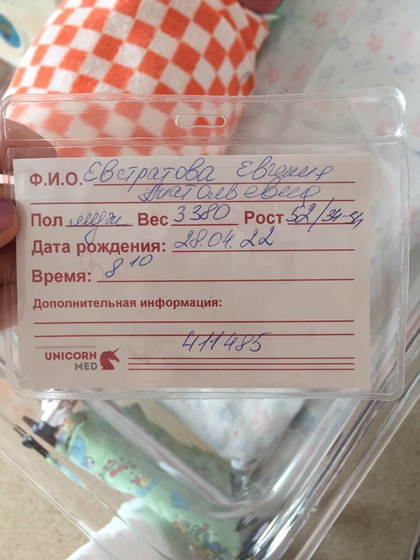 Ф.И.О. Евстратова Евгения
Анатольевна
Пол муж Вес 3380 Рост 52/34-34
Дата рождения: 28.04.22
Время: 8 10
Дополнительная информация:
411485
UNICORN
MED